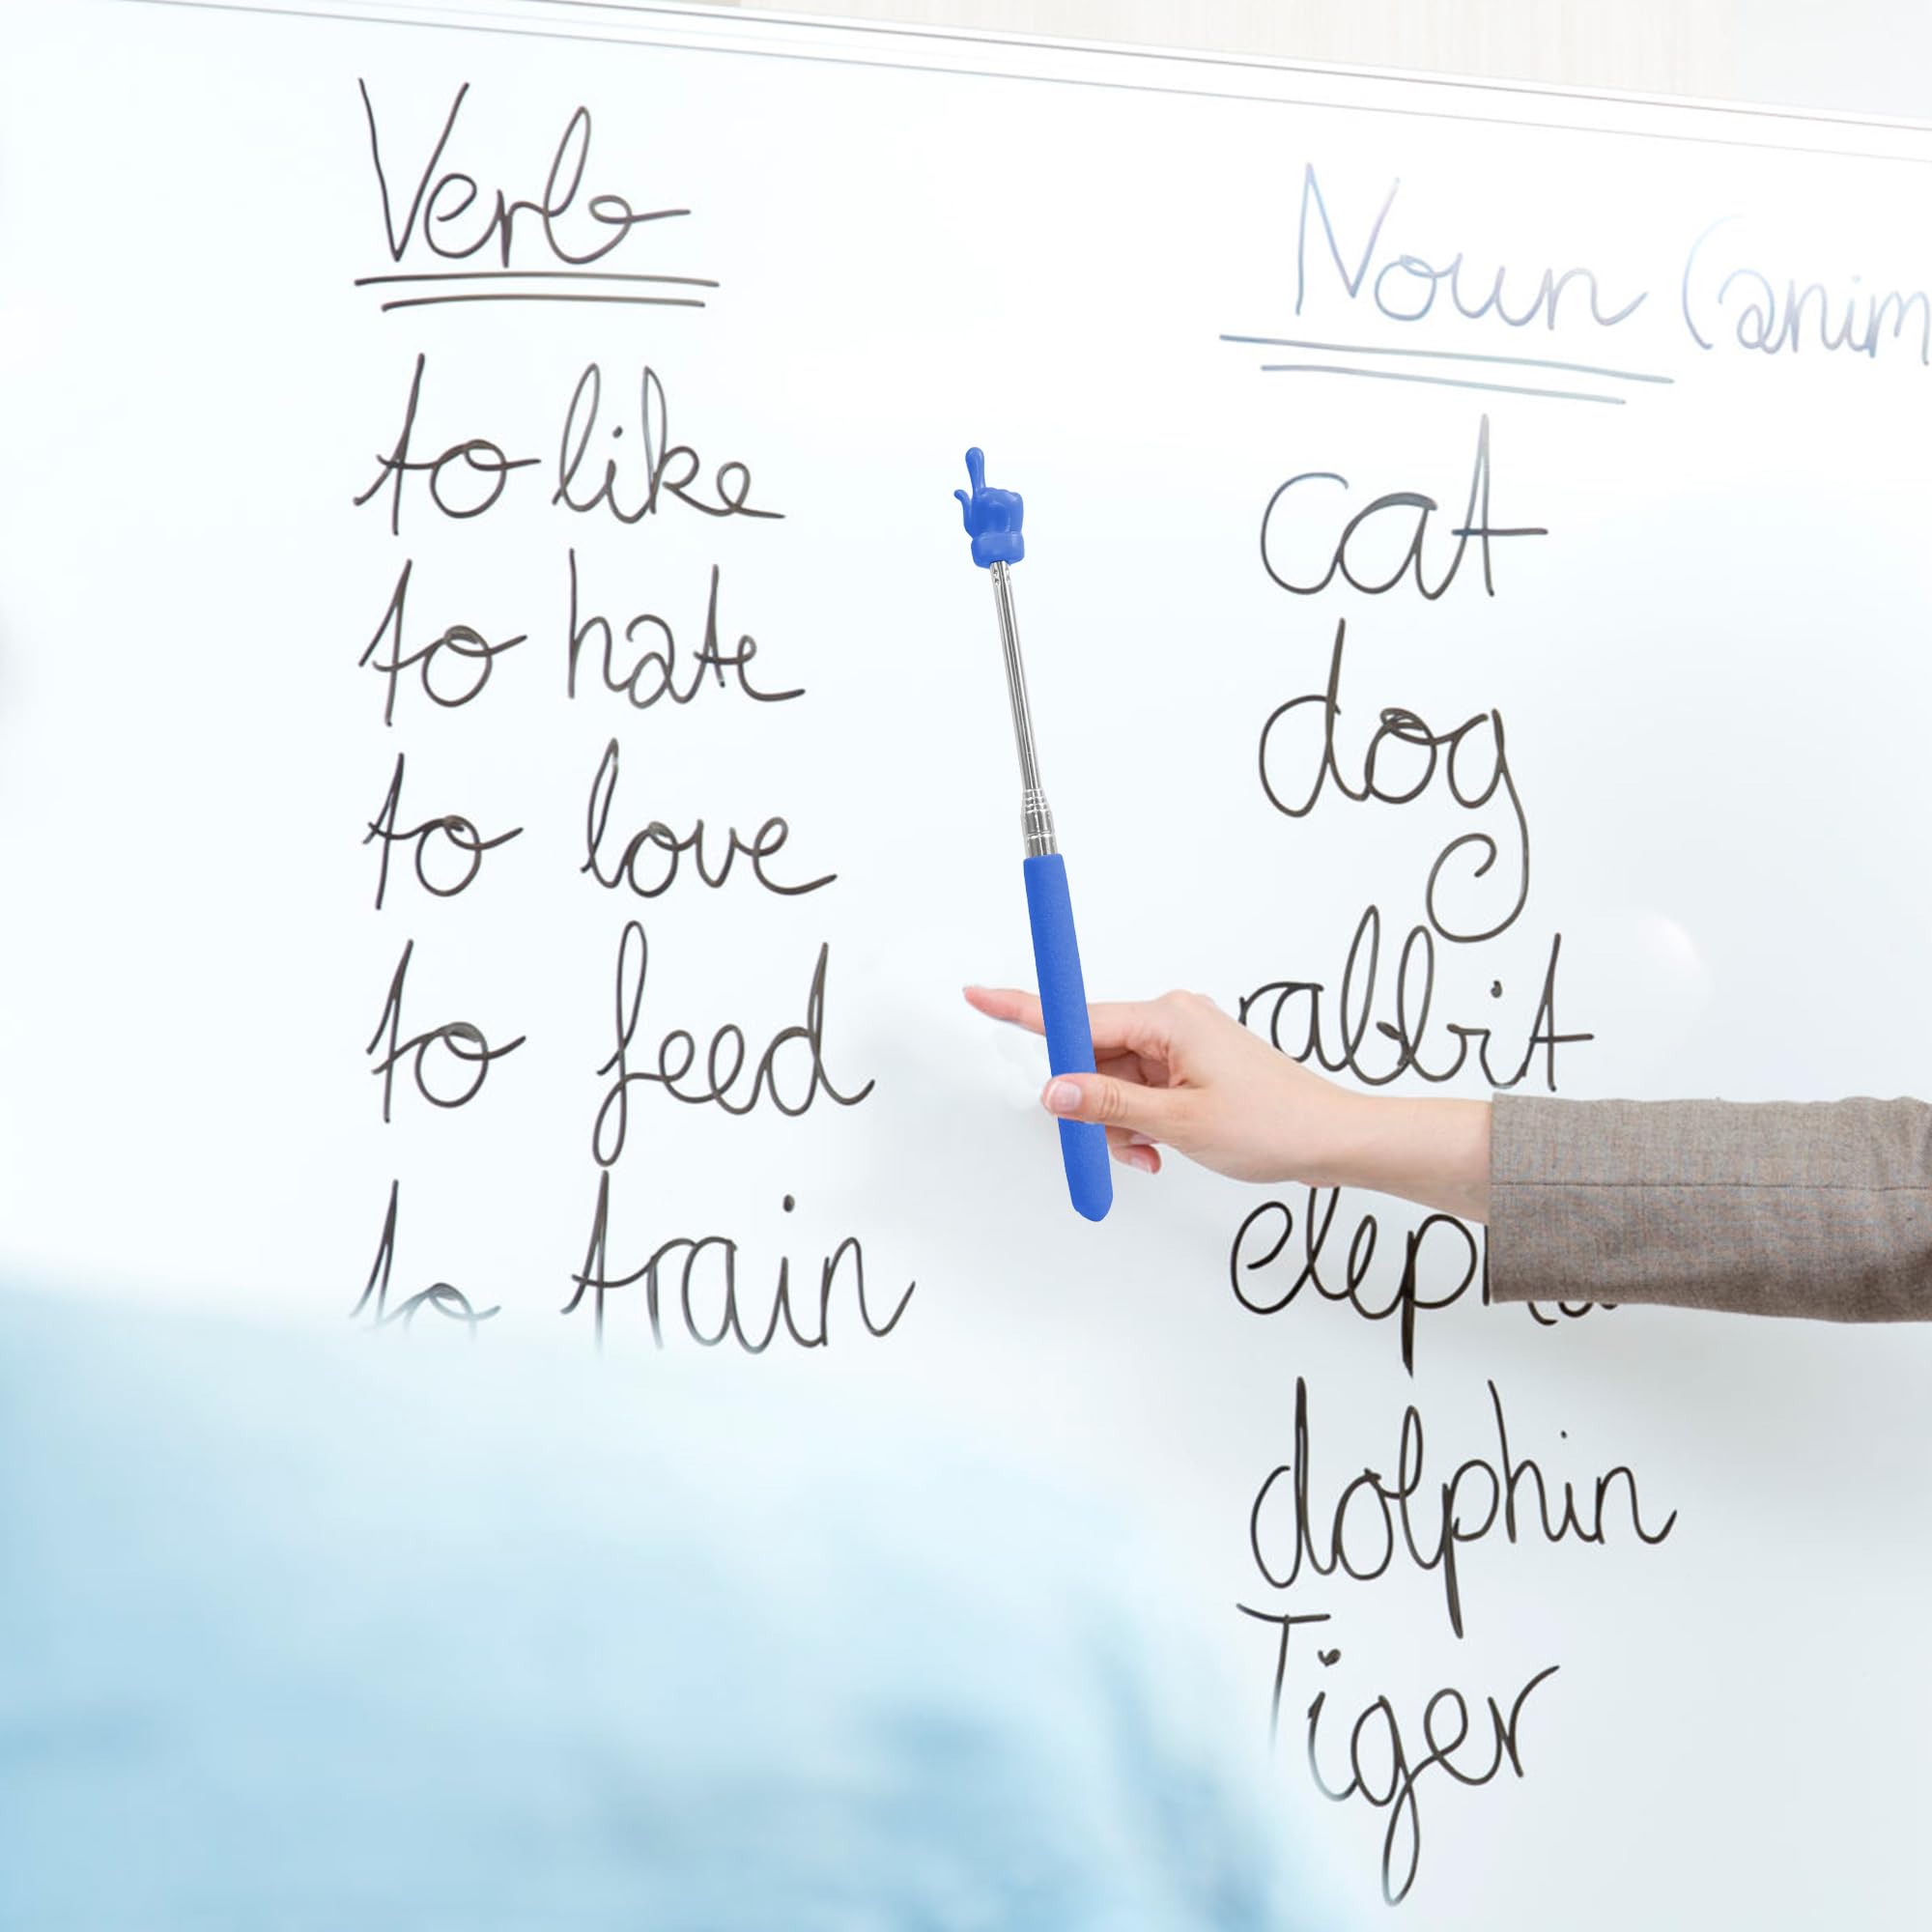 Verb
to like
to hate
to love
to feed
to train
Noun (anim
cat
dog
rabbit
eleph
dolphin
Tiger